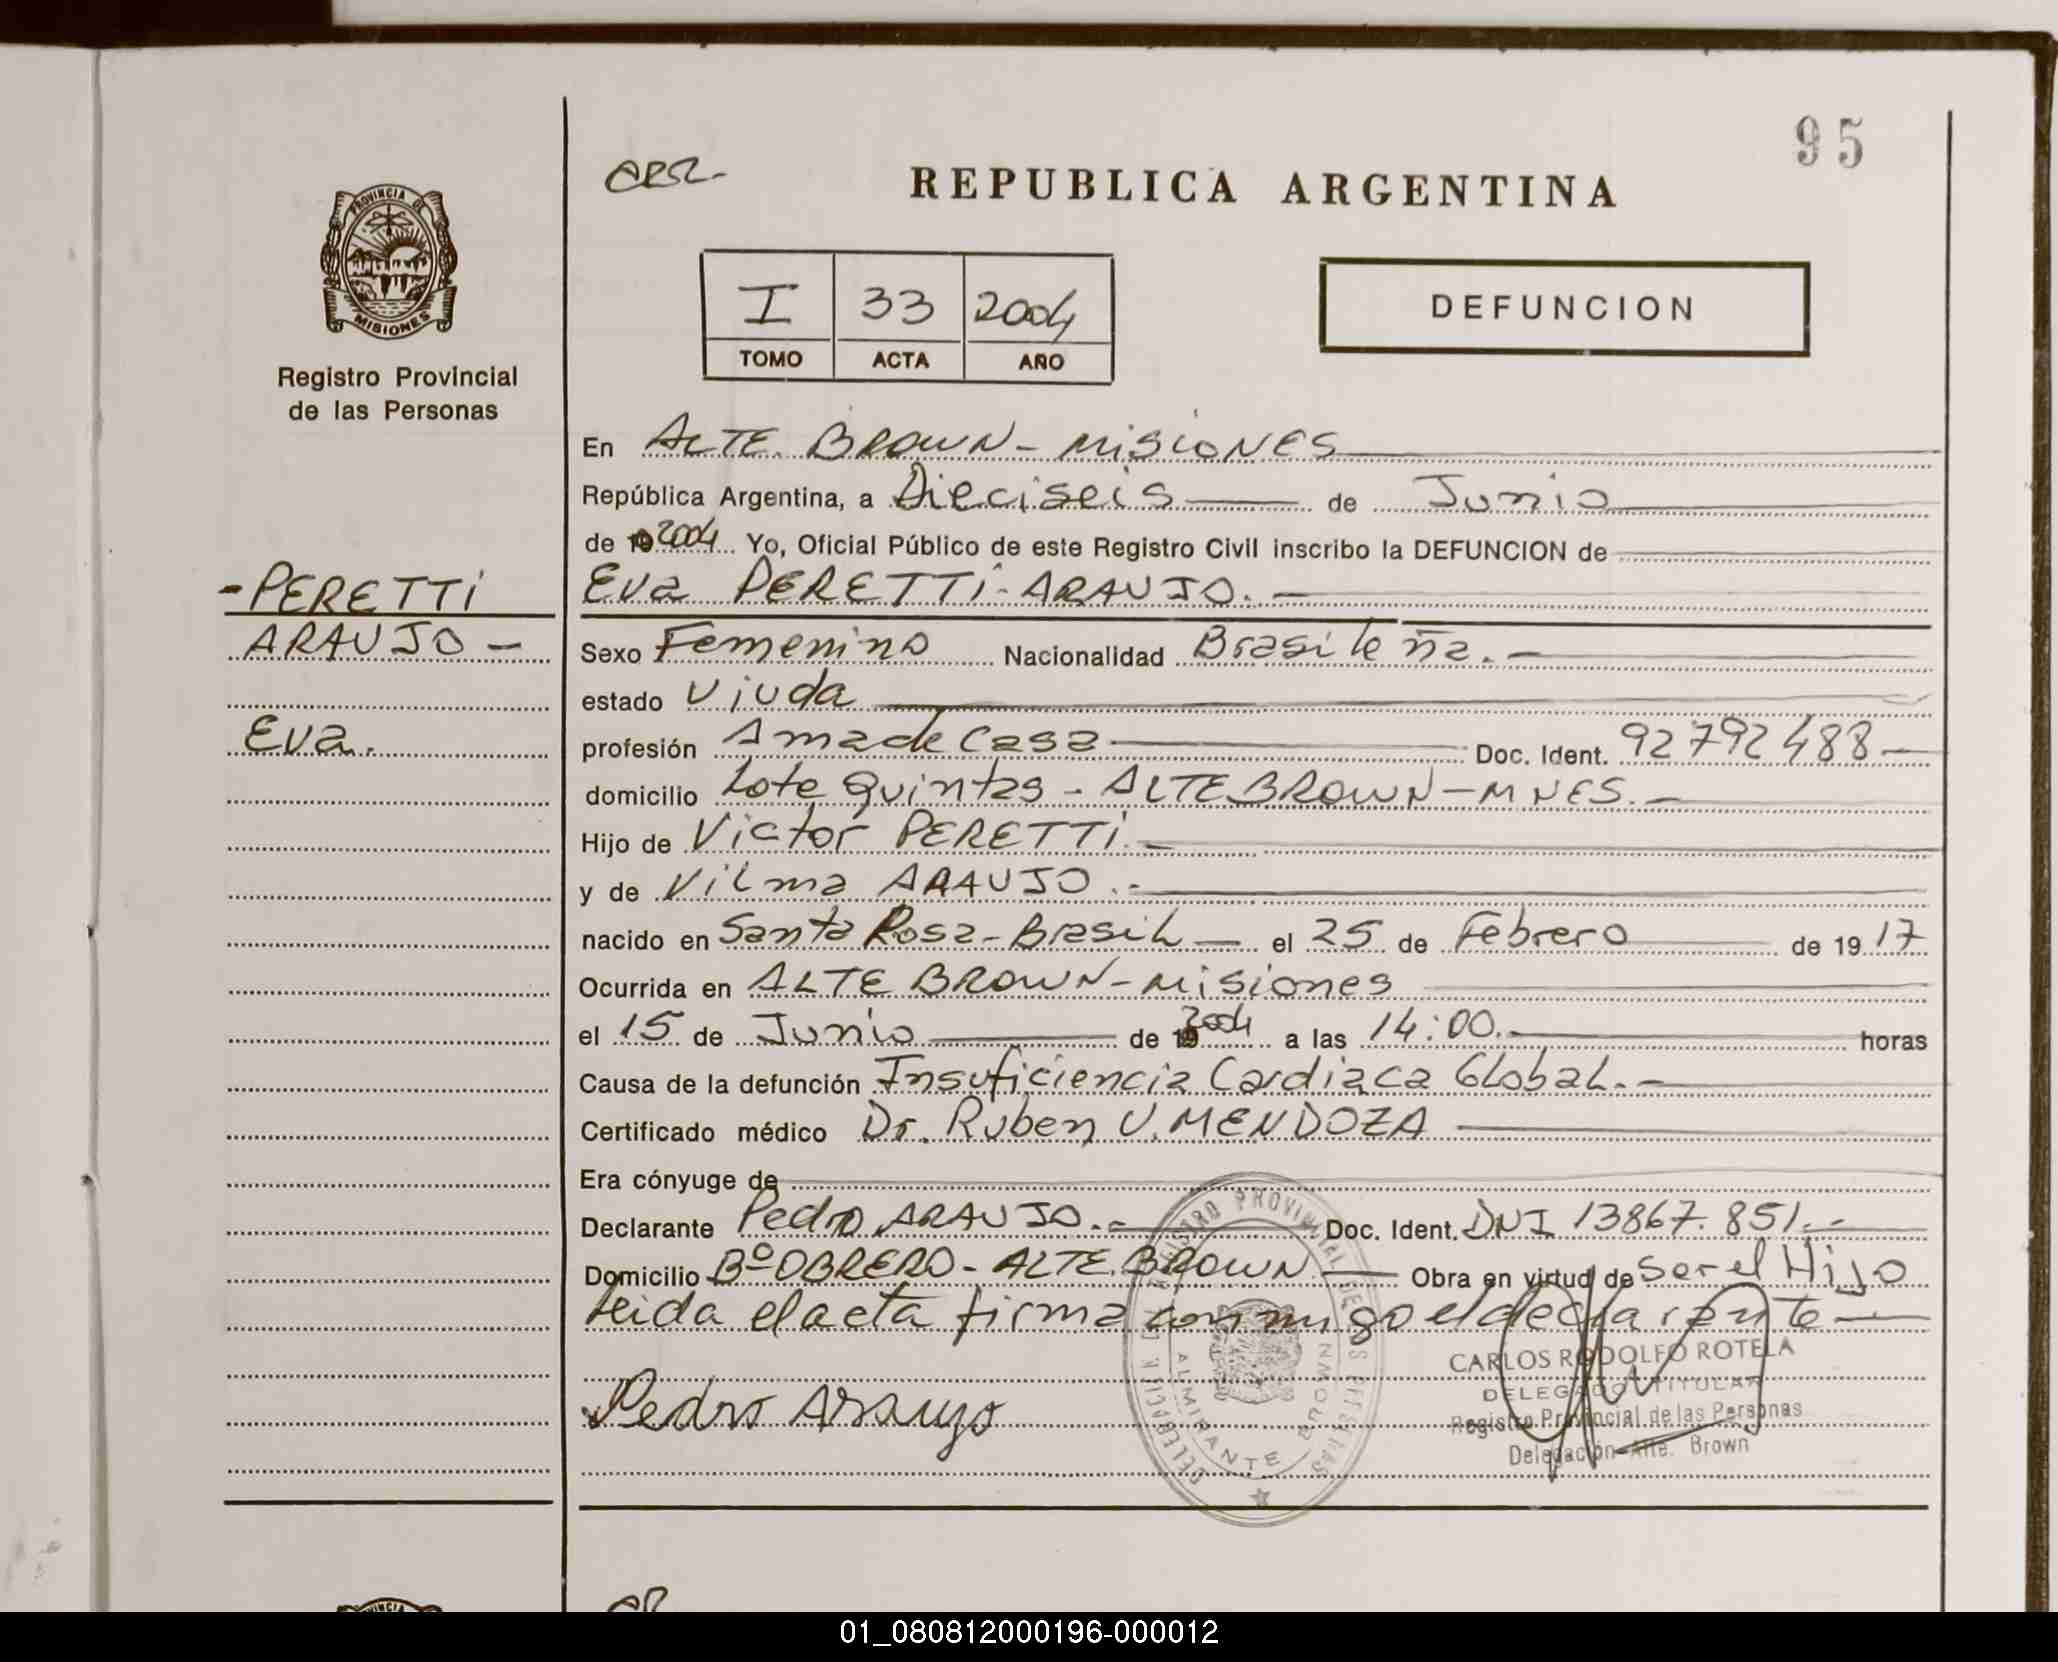 95
REPUBLICA ARGENTINA
PROVINCIA DE
MISIONES
Registro Provincial
de las Personas
I 33 2004
TOMO ACTA AÑO
DEFUNCION
En ALTE. BROWN - MISIONES
República Argentina, a Dieciseis de Junio
de 192004 Yo, Oficial Público de este Registro Civil inscribo la DEFUNCION de
- PERETTI
Eva PERETTI - ARAUJO. -
ARAUJO -
Sexo Femenino Nacionalidad Brasileña. -
estado Viuda
Eva.
profesión Ama de Casa Doc. Ident. 92792488 -
domicilio Lote Quintas - ALTE BROWN - MNES. -
Hijo de Victor PERETTI. -
y de Vilma ARAUJO. -
nacido en Santa Rosa - Brasil - el 25 de Febrero de 19 17
Ocurrida en ALTE BROWN - Misiones
el 15 de Junio de 19 2004 a las 14:00. - horas
Causa de la defunción Insuficiencia Cardiaca Global. -
Certificado médico Dr. Ruben V. MENDOZA
Era cónyuge de
Declarante Pedro ARAUJO. - Doc. Ident. DNI 13867.851. -
Domicilio Bº OBRERO - ALTE. BROWN - Obra en virtud de Ser el Hijo
Leida el acta firma conmigo el declarante -
REGISTRO PROVINCIAL DE LAS PERSONAS
DELEGACION
ALMIRANTE BROWN
CARLOS RODOLFO ROTELA
DELEGADO TITULAR
Registro Provincial de las Personas
Delegación Alte. Brown
Pedro Araujo
01_080812000196-000012